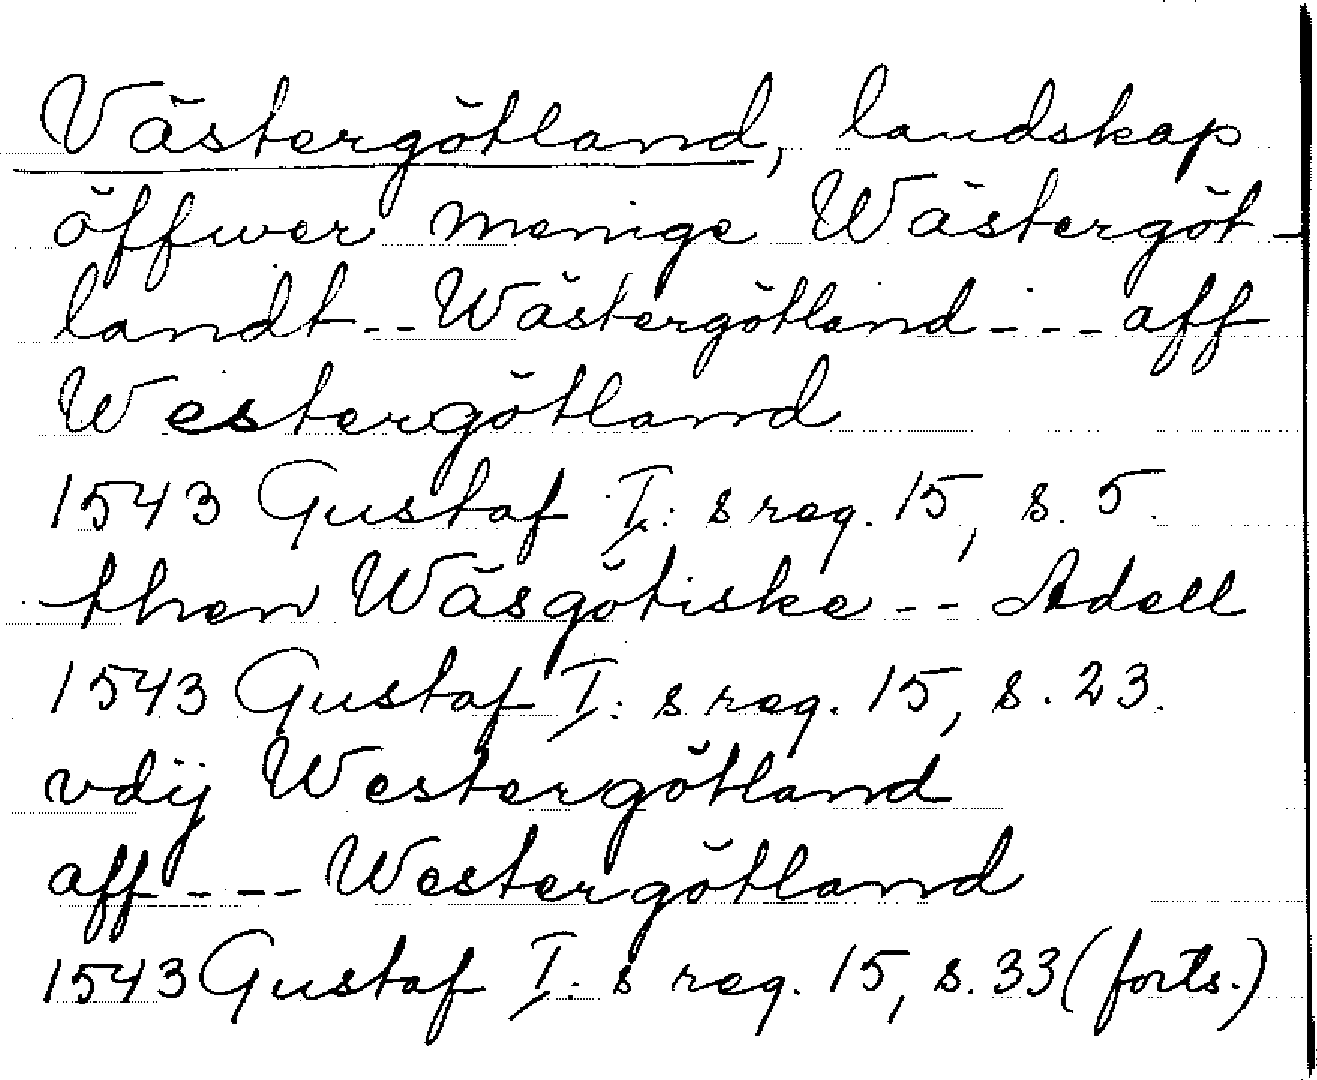 Västergötland, landskap
öffwer menige Wästergöt-
landt -- Wästergötland --- aff
Westergötland
1543 Gustaf I: s reg. 15, s. 5.
then Wäsgötiske -- Adell
1543 Gustaf I: s reg. 15, s. 23.
vdij Westergötland
aff --- Westergötland
1543 Gustaf I: s reg. 15, s. 33 (forts.)